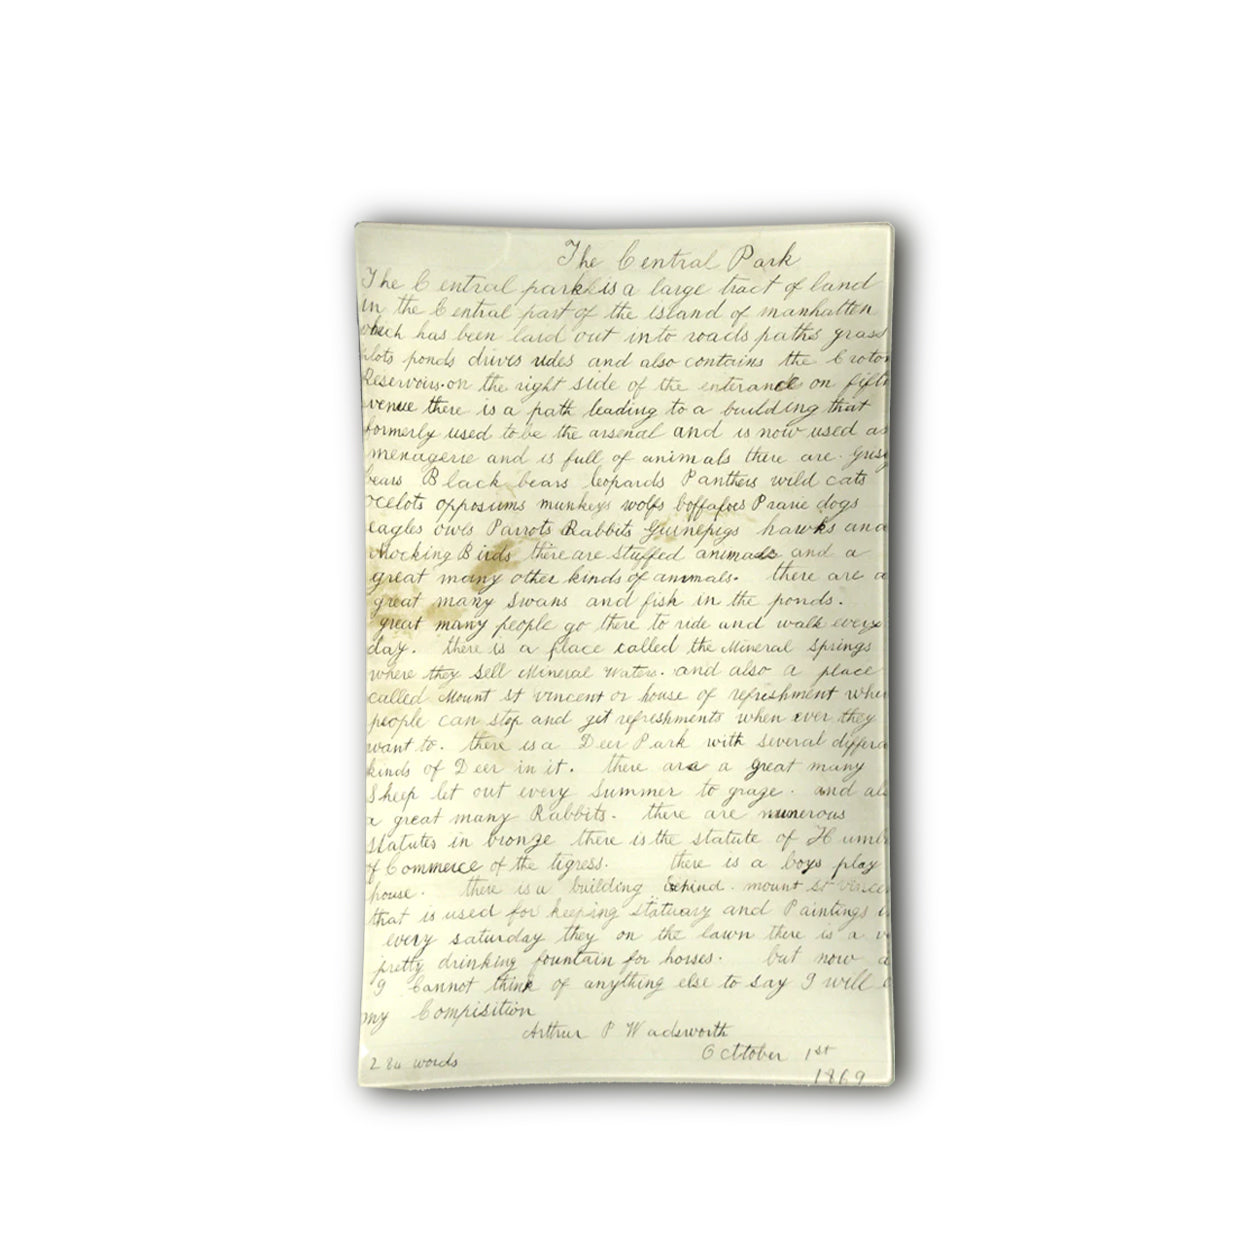 The Central Park
The Central park is a large tract of land
in the Central part of the island of manhatten
which has been laid out into roads paths grass
plots ponds drives rides and also contains the Croton
Reservoirs. on the right side of the enterance on fifth
avenue there is a path leading to a building that
formerly used to be the arsenal and is now used as
menagerie and is full of animals there are
bears Black bears leopards Panthers wild cats
ocelots opposiums munkeys wolfs boffafoes Prarie dogs
eagles owls Parrots Rabbits Guinepigs hawks and
Mocking Birds there are stuffed animals and a
great many other kinds of animals. there are a
great many Swans and fish in the ponds.
great many people go there to ride and walk every
day. there is a place called the Mineral Springs
where they sell Mineral Waters. and also a place
called Mount St Vincent or house of refreshment
people can stop and get refreshments when ever they
want to. there is a Deer Park with several
kinds of Deer in it. there are a great many
Sheep let out every Summer to graze. and
a great many Rabbits. there are numerous
statutes in bronze there is the statute of
of Commerce of the tigress. there is a boys play
house. there is a building behind. mount St
that is used for keeping statuary and Paintings
every saturday they on the lawn there is a
pretty drinking fountain for horses. but now
I Cannot think of anything else to say I will
my Compisition
Arthur P Wadsworth
Octtober 1st
1869
words